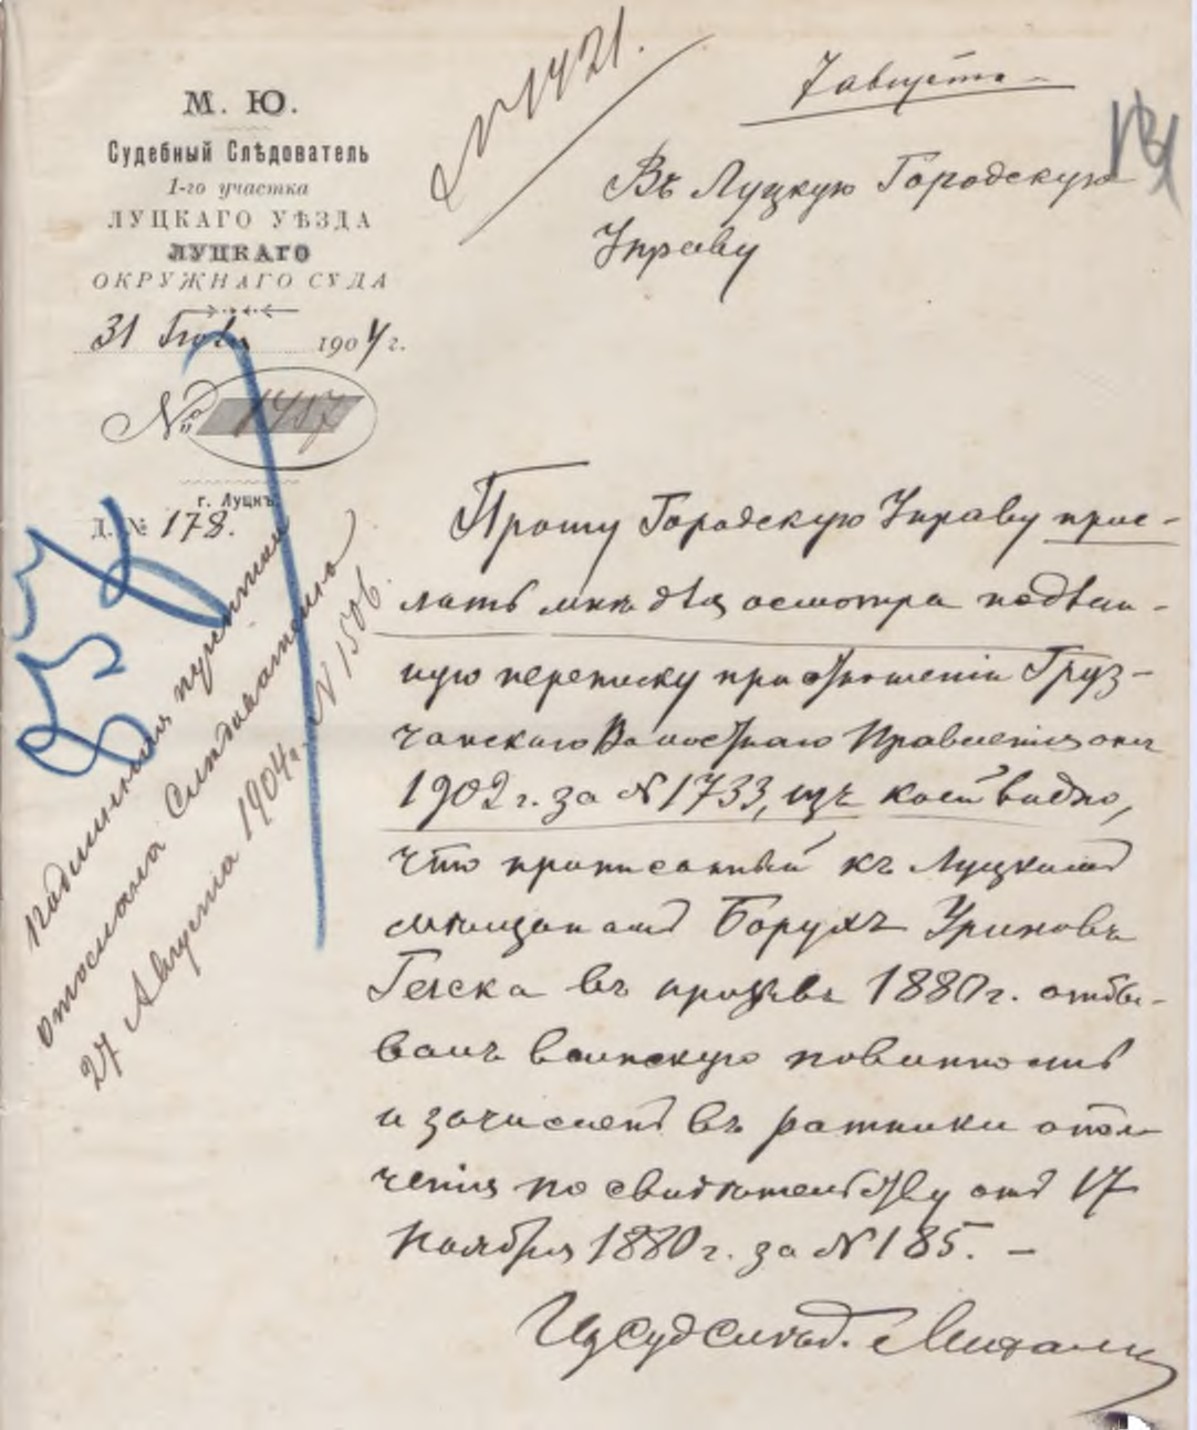 М. Ю.
Судебный Слѣдователь
1-го участка
ЛУЦКАГО УѢЗДА
ЛУЦКАГО
ОКРУЖНАГО СУДА
31 Іюля 1904 г.
№ 1457
г. Луцкъ
Д. № 178.
№ 1421.
7 августа
131
Въ Луцкую Городскую
Управу
Прошу Городскую Управу прис-
лать мнѣ для осмотра подлин-
ную переписку при отношеніи
Волостнаго Правленія отъ
1902 г. за № 1733, изъ коей видно,
что приписанный къ Луцкимъ
мѣщанамъ Борухъ Уриновъ
Геиска въ призывъ 1880 г. отбы-
валъ воинскую повинность
и зачисленъ въ ратники опол-
ченія по свидѣтельству отъ 17
Ноября 1880 г. за № 185. —
И д Суд Слѣд.
отослана Слѣдователю
27 Августа 1904 г. № 1506.